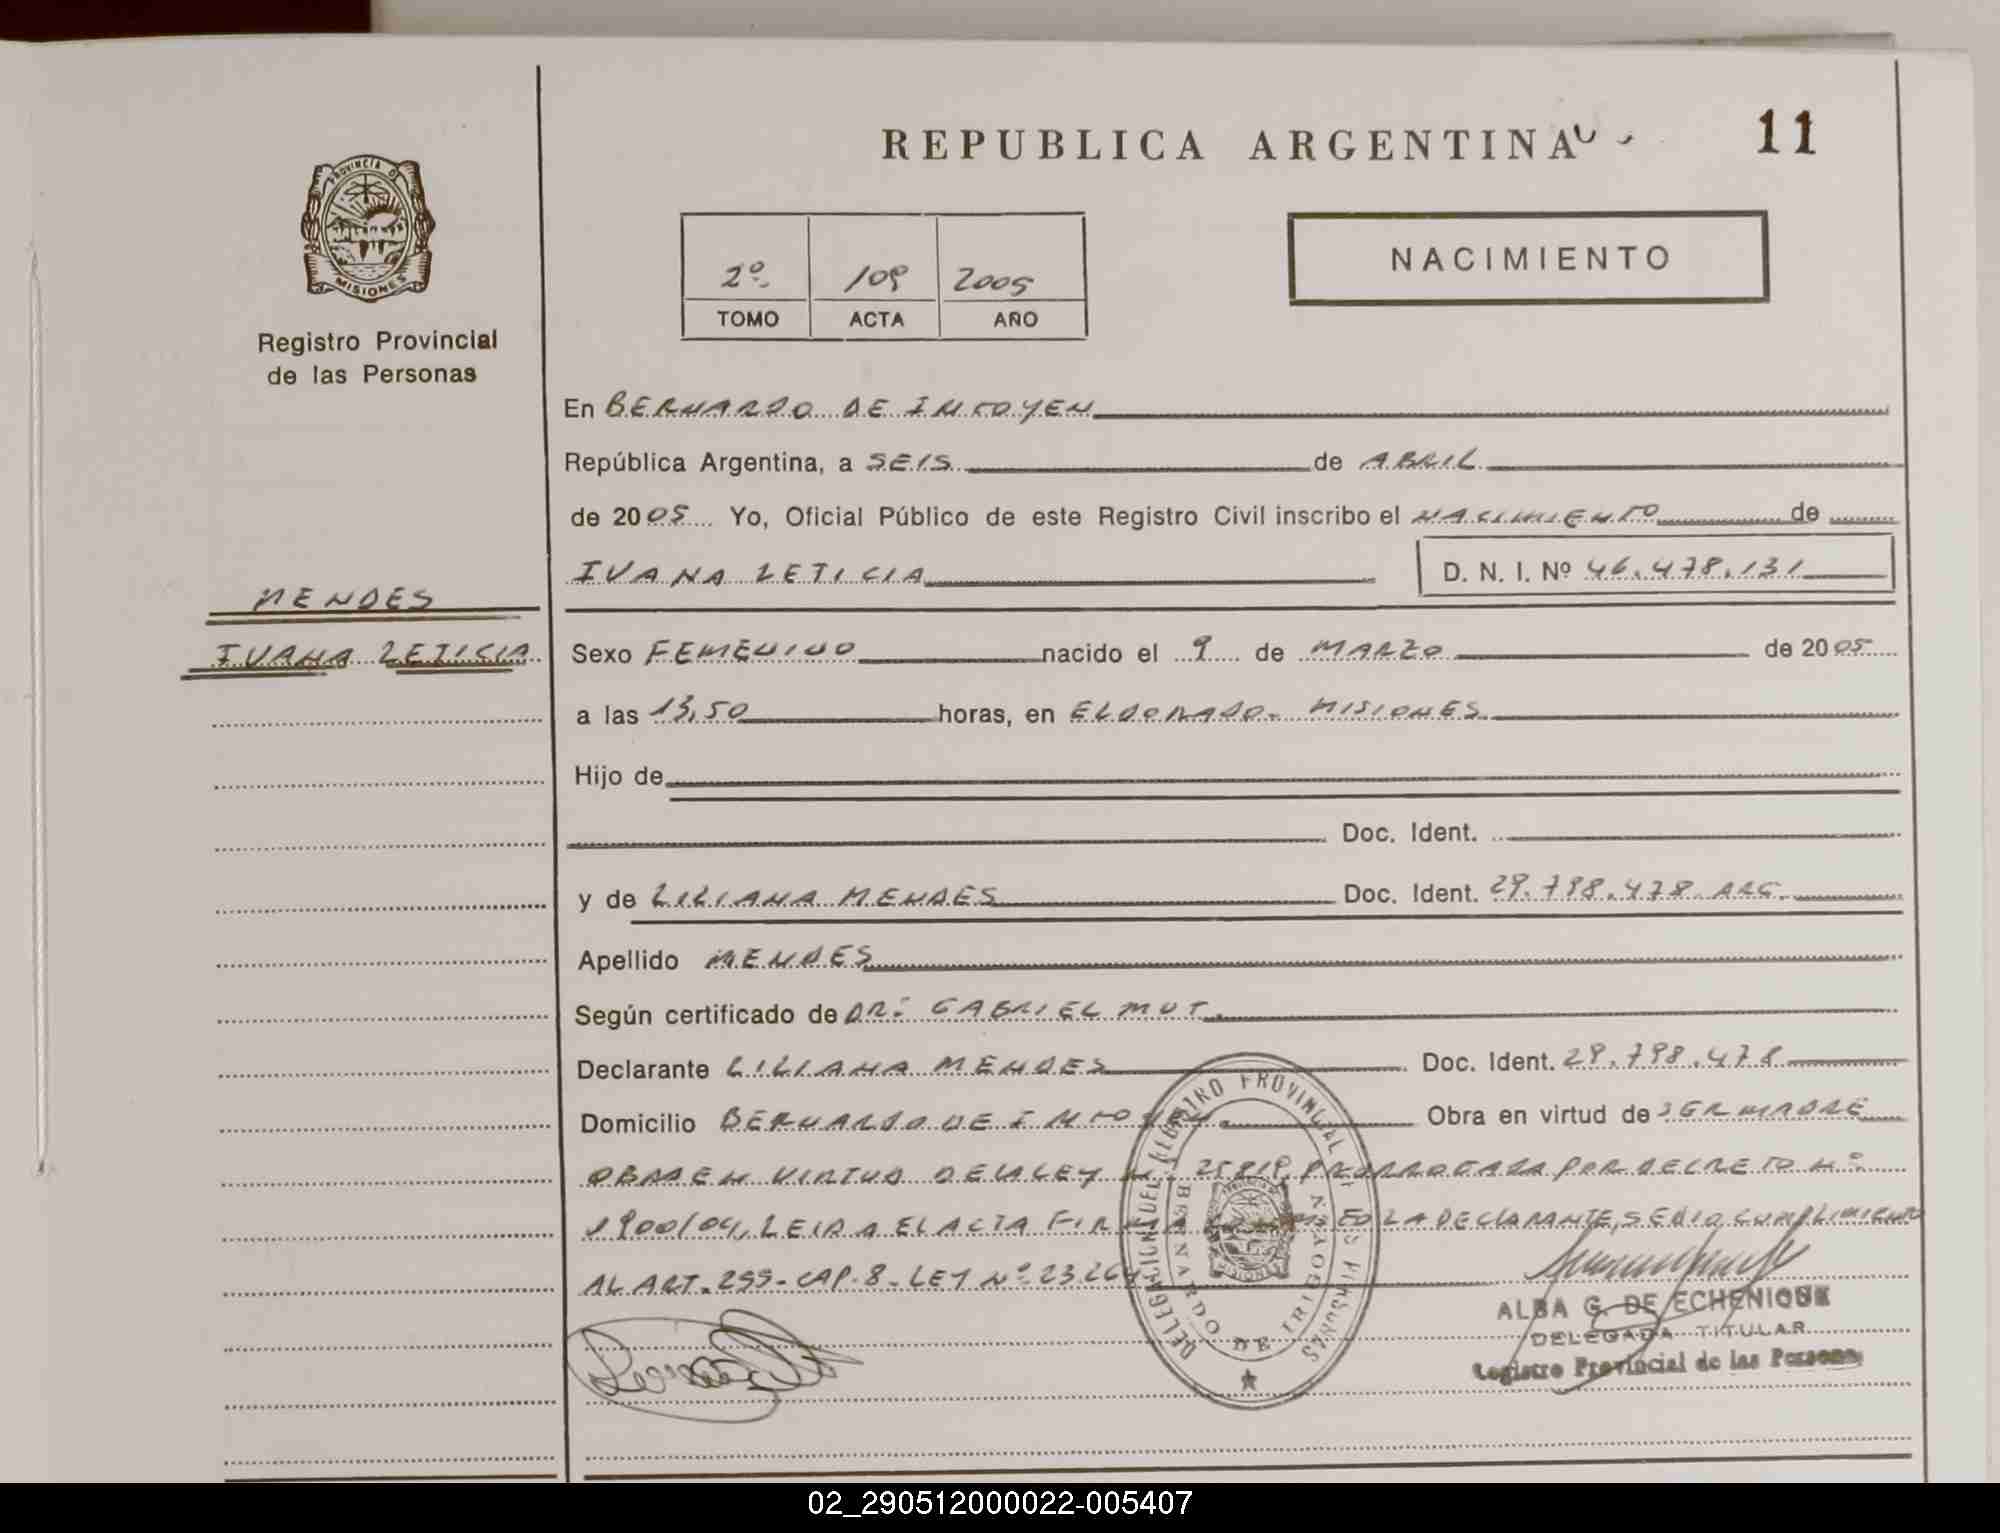 REPUBLICA ARGENTINA
11
PROVINCIA DE
MISIONES
Registro Provincial
de las Personas
2º 109 2005
TOMO ACTA AÑO
NACIMIENTO
En BERNARDO DE IRIGOYEN
República Argentina, a SEIS de ABRIL
de 2005 Yo, Oficial Público de este Registro Civil inscribo el NACIMIENTO de
IVANA LETICIA D. N. I. Nº 46.478.131
MENDES
IVANA LETICIA
Sexo FEMENINO nacido el 9 de MARZO de 2005
a las 13,50 horas, en ELDORADO- MISIONES
Hijo de
Doc. Ident.
y de LILIANA MENDES Doc. Ident. 29.798.478 ARG.
Apellido MENDES
Según certificado de DR: GABRIEL MUT.
Declarante LILIANA MENDES Doc. Ident. 29.798.478
Domicilio BERNARDO DE IRIGOYEN. Obra en virtud de SER MADRE
OBRA EN VIRTUD DE LA LEY Nº 25819, PRORROGADA POR DECRETO Nº
1900/04, LEIDA EL ACTA FIRMA LA DECLARANTE, SE DIO CUMPLIMIENTO
AL ART. 255- CAP. 8- LEY Nº 23264
DELEGACION DEL REGISTRO PROVINCIAL DE LAS PERSONAS
BERNARDO DE IRIGOYEN
MISIONES
ALBA G. DE ECHENIQUE
DELEGADA TITULAR
Registro Provincial de las Personas
02_290512000022-005407